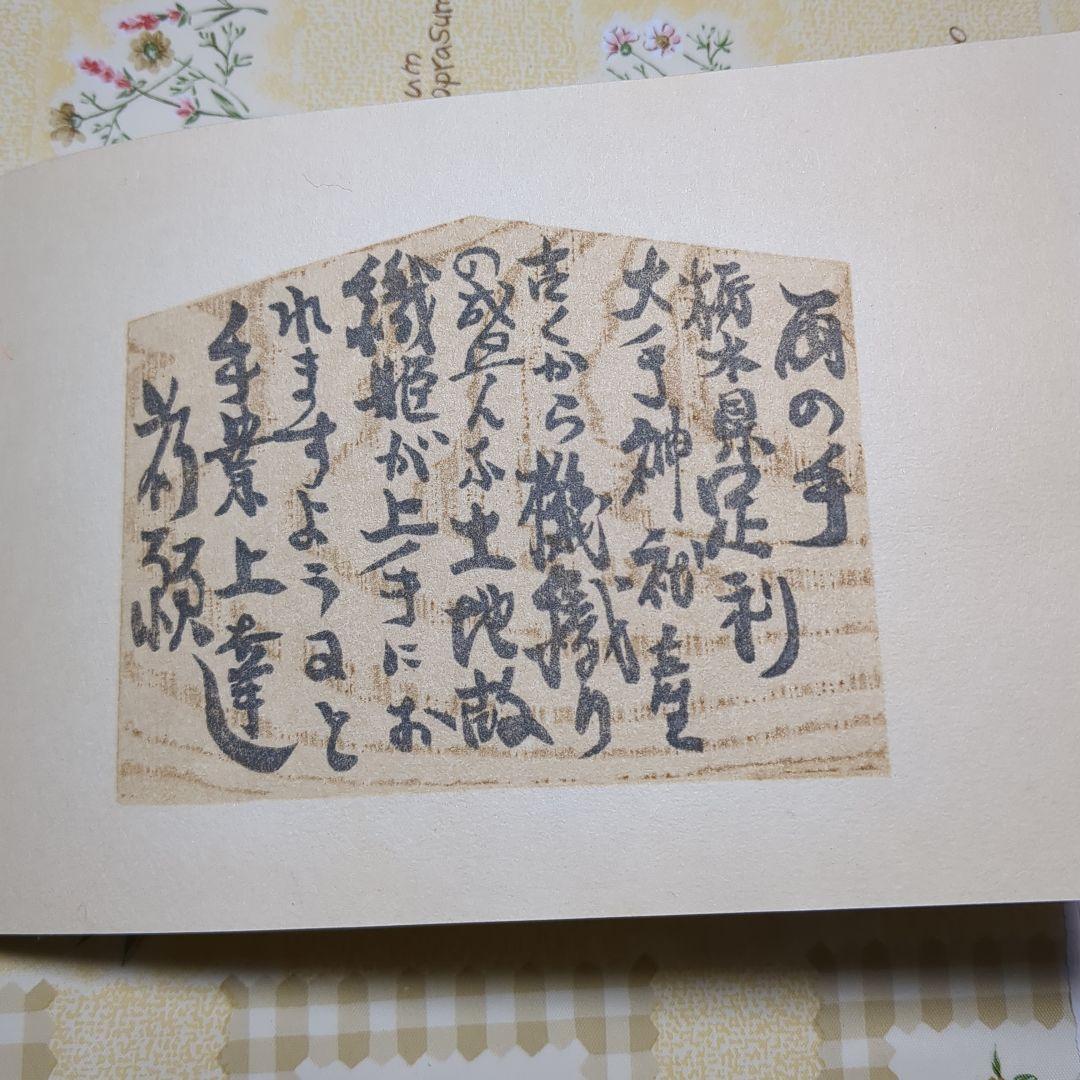 両の手
栃木県足利
大手神社
古くから機織り
の盛んな土地故
織姫が上手にお
れますようにと
手業上達
祈願